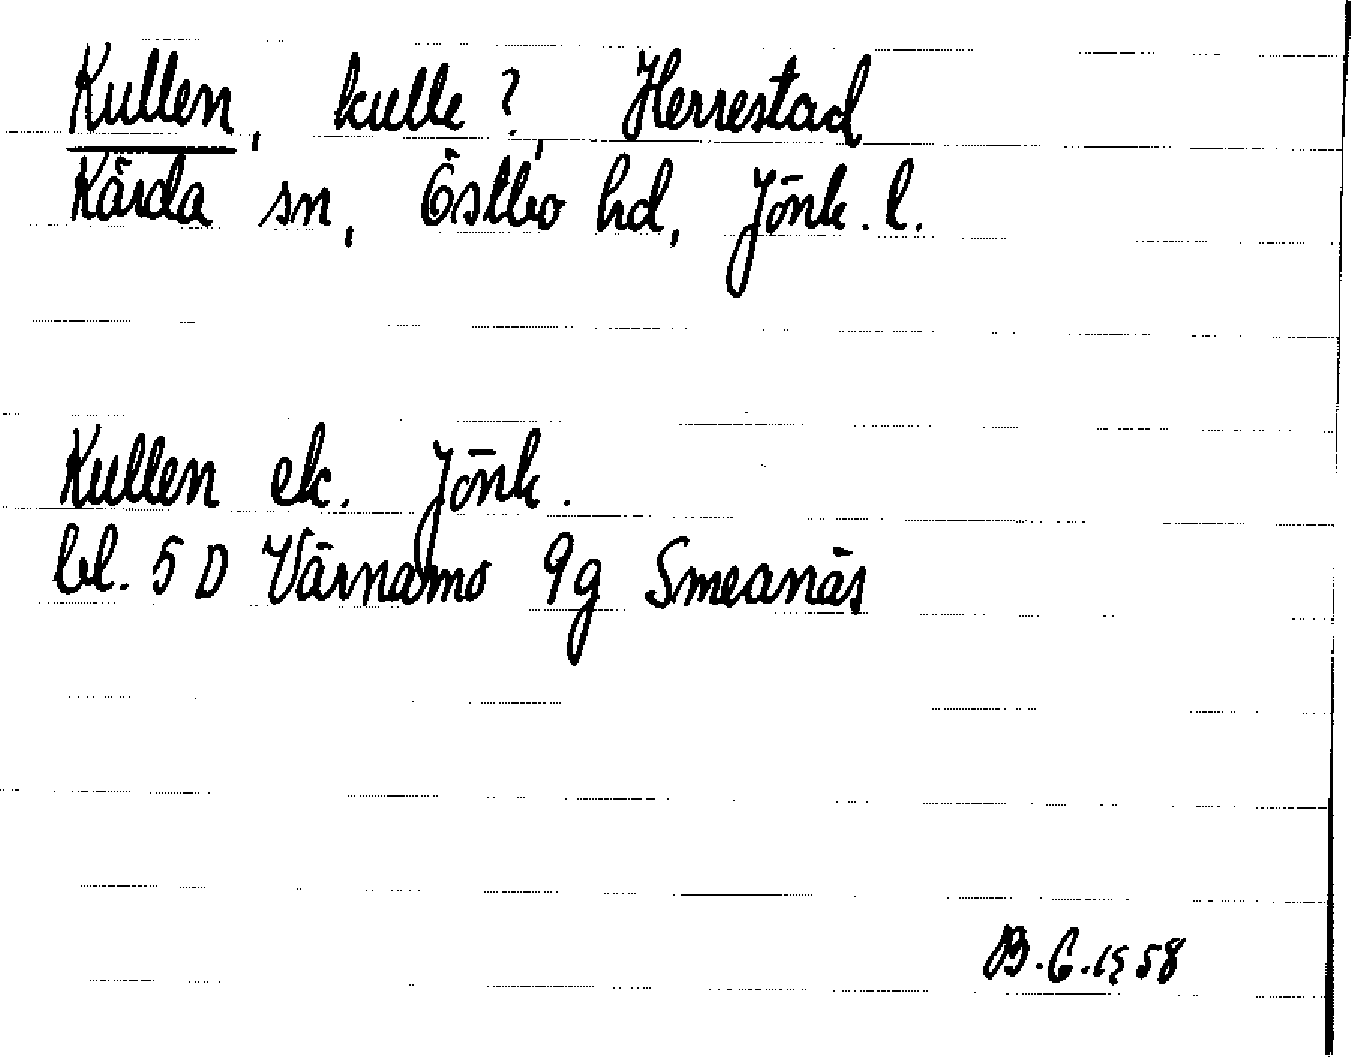 Kullen, kulle?, Herrestad
Kärda sn, Östbo hd, Jönk. l.
Kullen ek. Jönk.
bl. 5 D Värnamo 9g Smeanäs
B.G.1958